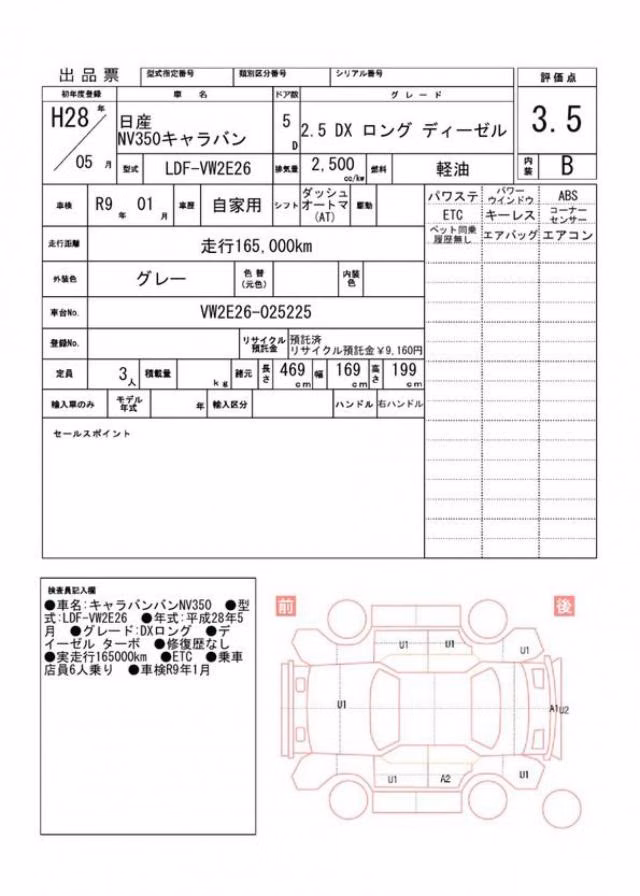 出品票 型式指定番号 類別区分番号 シリアル番号 評価点
初年度登録 車名 ドア数 グレード
H28年 日産 5D 2.5 DX ロング ディーゼル 3.5
NV350キャラバン
05月 型式 LDF-VW2E26 排気量 2,500 cc/kw 燃料 軽油 内装 B
車検 R9年 01月 車歴 自家用 シフト ダッシュオートマ(AT) 駆動
パワステ パワーウインドウ ABS
ETC キーレス コーナーセンサー
ペット同乗履歴無し エアバッグ エアコン
走行距離 走行165,000km
外装色 グレー 色替(元色) 内装色
車台No. VW2E26-025225
登録No. リサイクル預託金 預託済
リサイクル預託金¥9,160円
定員 3人 積載量 kg 諸元 長さ 469cm 幅 169cm 高さ 199cm
輸入車のみ モデル年式 年 輸入区分 ハンドル 右ハンドル
セールスポイント
検査員記入欄
●車名:キャラバンバンNV350 ●型
式:LDF-VW2E26 ●年式:平成28年5
月 ●グレード:DXロング ●デ
ィーゼル ターボ ●修復歴なし
●実走行165000km ●ETC ●乗車
店員6人乗り ●車検R9年1月
前 後
U1 U1 U1
U1 A1 U2
U1 A2 U1